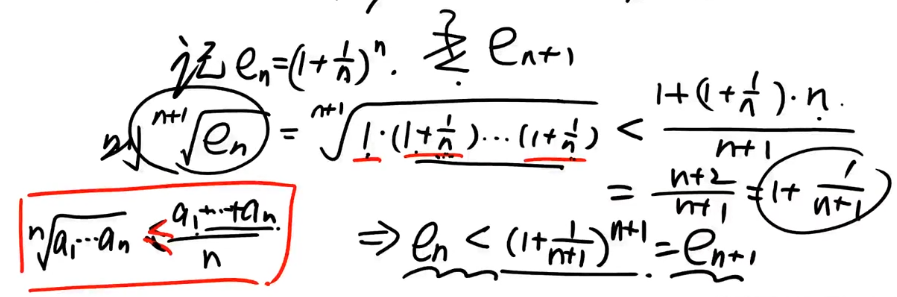 记 eₙ=(1+1/n)ⁿ. eₙ₊₁
ⁿ⁺¹√eₙ = ⁿ⁺¹√(1·(1+1/n)···(1+1/n)) < (1+(1+1/n)·n)/(n+1)
= (n+2)/(n+1) = 1+1/(n+1)
ⁿ√(a₁···aₙ) ≤ (a₁+···+aₙ)/n
⇒ eₙ < (1+1/(n+1))ⁿ⁺¹ = eₙ₊₁